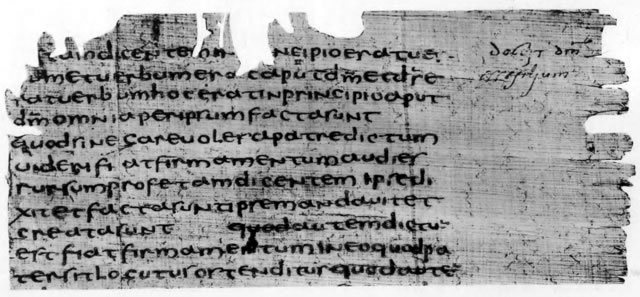 dicentem in NCIPIO erat uer
um et uerbum era aput dm et ds e
rat uerbum hoc erat in principio aput
dm omnia per ipsum facta sunt
quod si negare uoles a patre dictum
uideri fiat firmamentum audies
rursum profetam dicentem ipse di
xit et facta sunt ipse mandauit et
creata sunt quod autem dictu
est fiat firmamentum in eo quod pa
ter sit locutus ostenditur quod aute